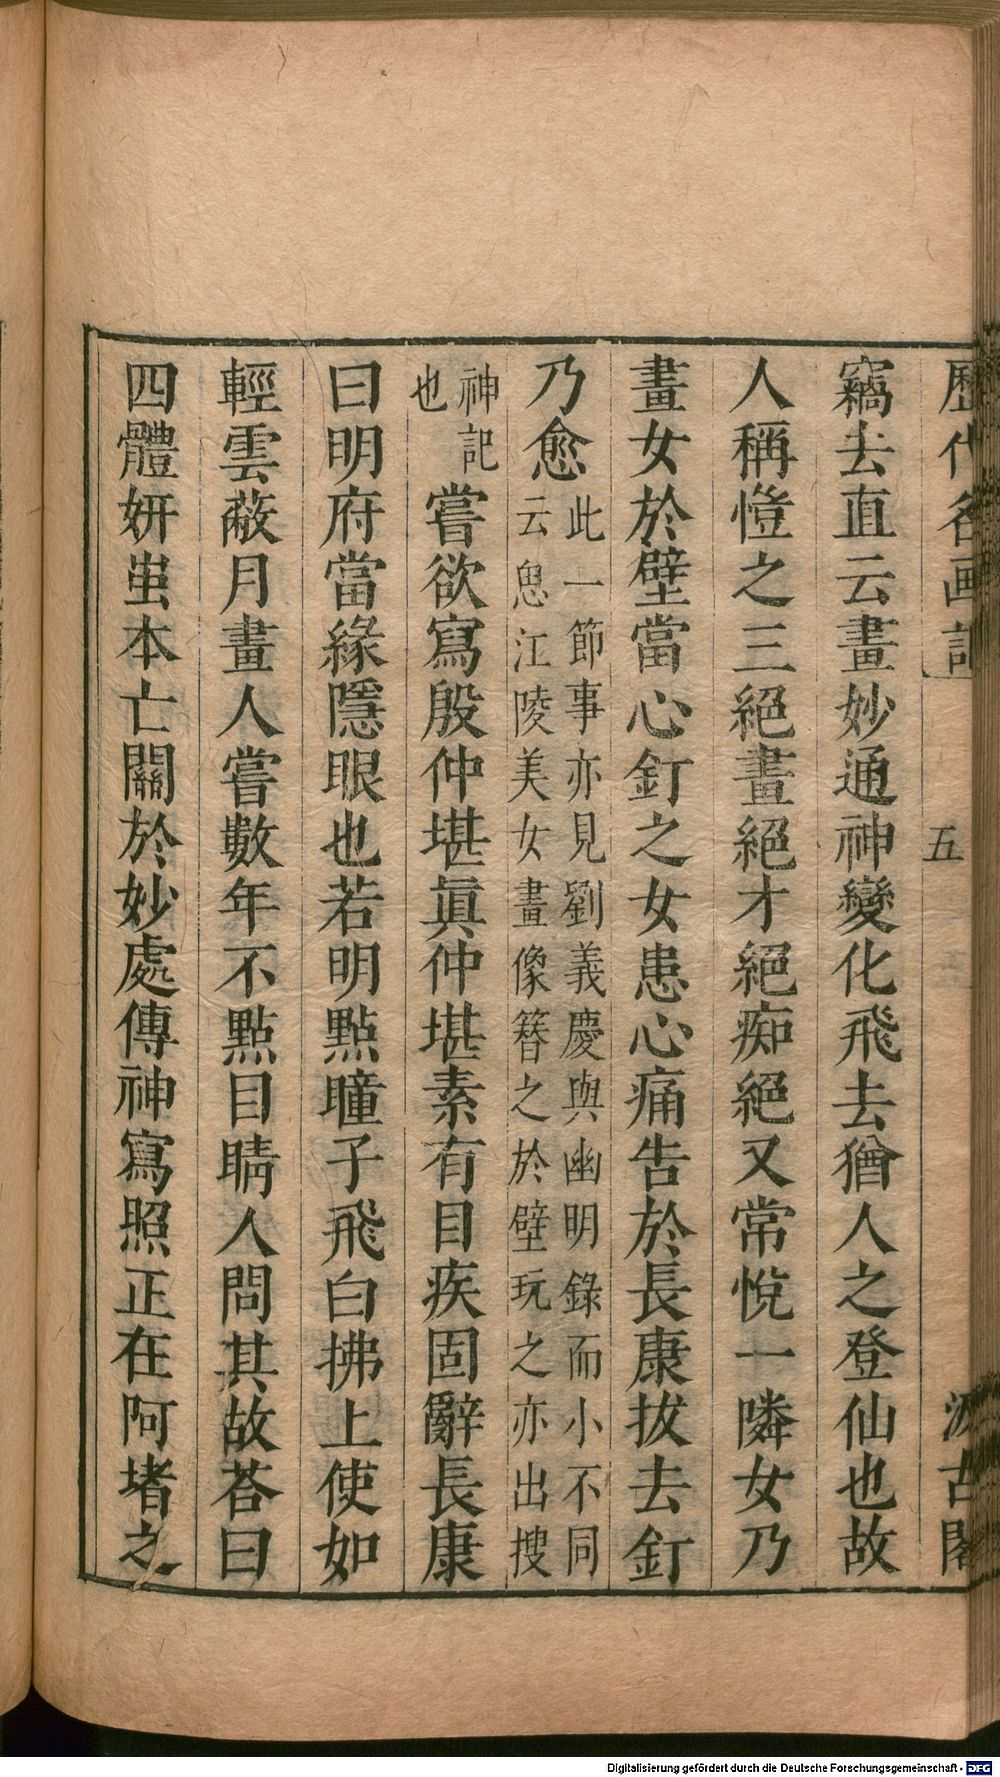 歷代名画記 五 汲古閣
竊去直云畫妙通神變化飛去猶人之登仙也故
人稱愷之三絕畫絕才絕痴絕又常悅一隣女乃
畫女於壁當心釘之女患心痛告於長康拔去釘
乃愈此一節事亦見劉義慶與幽明錄而小不同
云思江陵美女畫像簪之於壁玩之亦出搜
神記
也嘗欲寫殷仲堪眞仲堪素有目疾固辭長康
曰明府當緣隱眼也若明點瞳子飛白拂上使如
輕雲蔽月畫人嘗數年不點目睛人問其故荅曰
四體妍蚩本亡關於妙處傳神寫照正在阿堵之
Digitalisierung gefördert durch die Deutsche Forschungsgemeinschaft - DFG